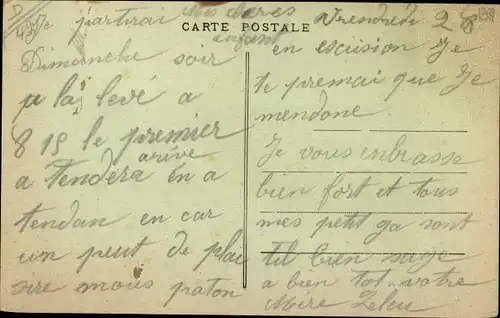 Vendredi 28
mes chères
enfant
CARTE POSTALE
Je partirai
Dimanche soir
a la levé a
8 15 le premier
arive
a tendera en a
tendan en car
un peut de plai
sire nous paton
en escusion Je
te premai que Je
mendone.
Je vous enbrasse
bien fort et tous
mes petit ga sont
til bien sage
a bien tot votre
Mère